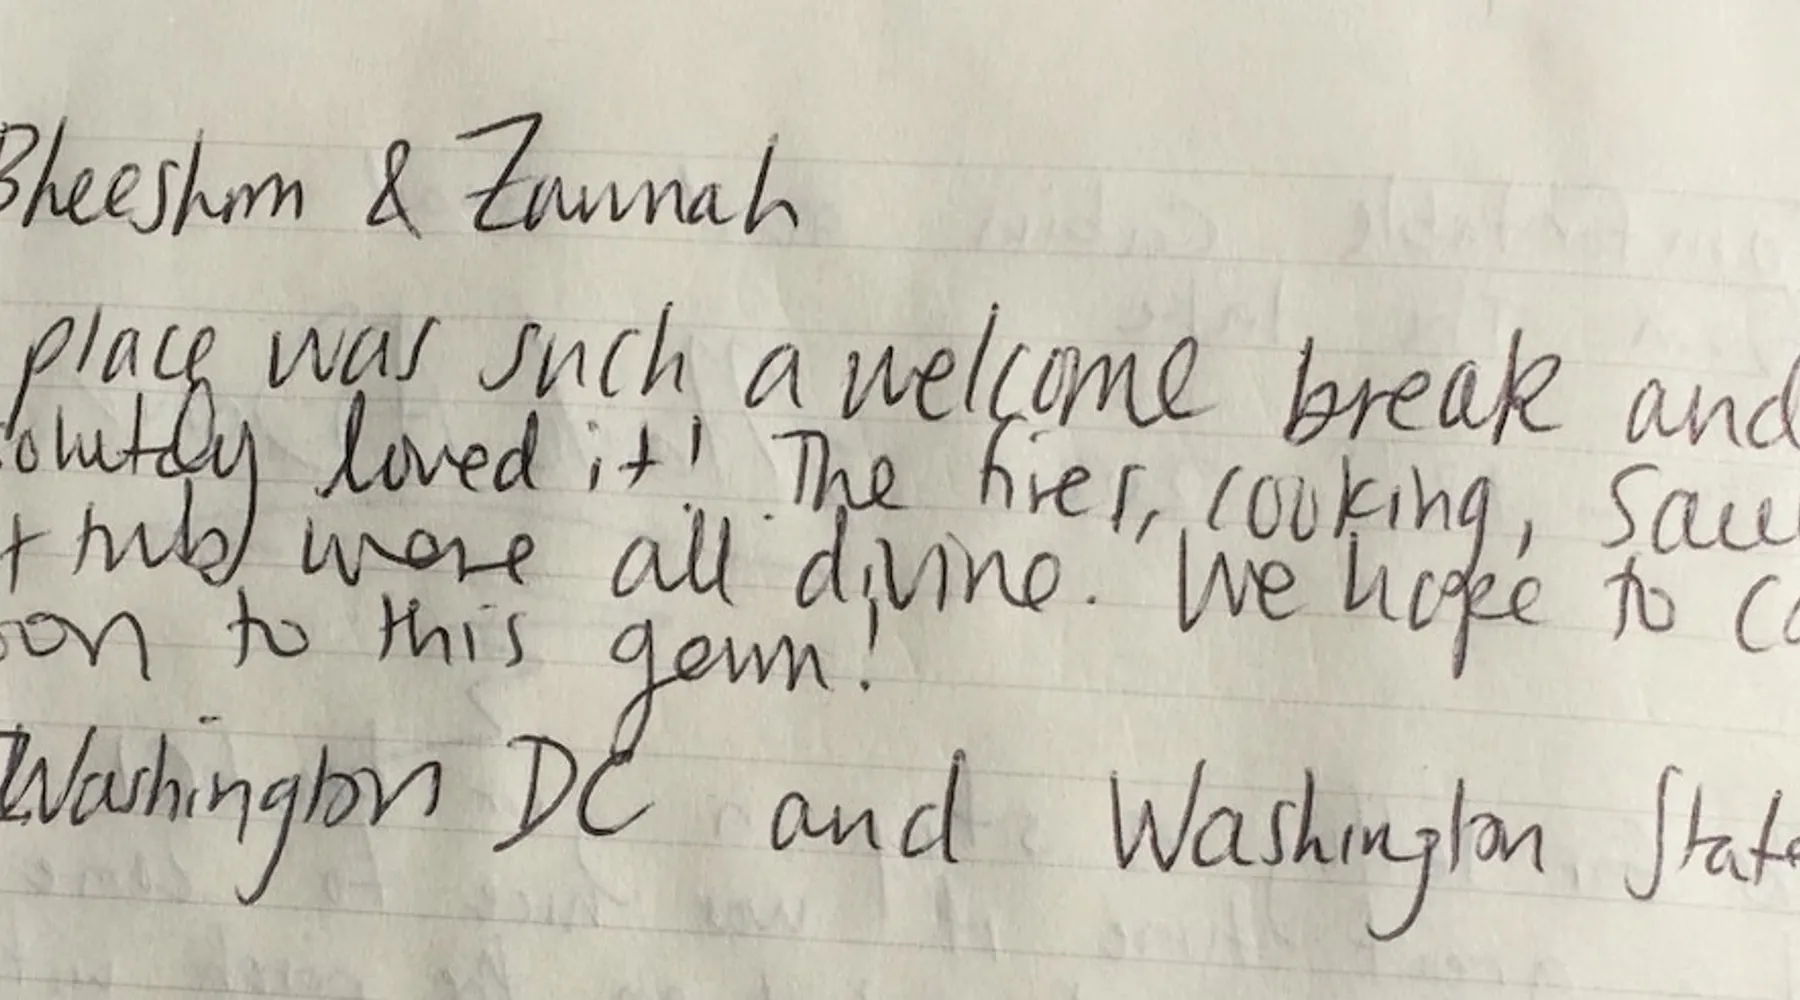 Bheeshm & Zaunnah
place was such a welcome break and
olutely loved it! The fires, cooking, Sau
t tub were all divine. We hope to co
oon to this gem!
Washington DC and Washington State